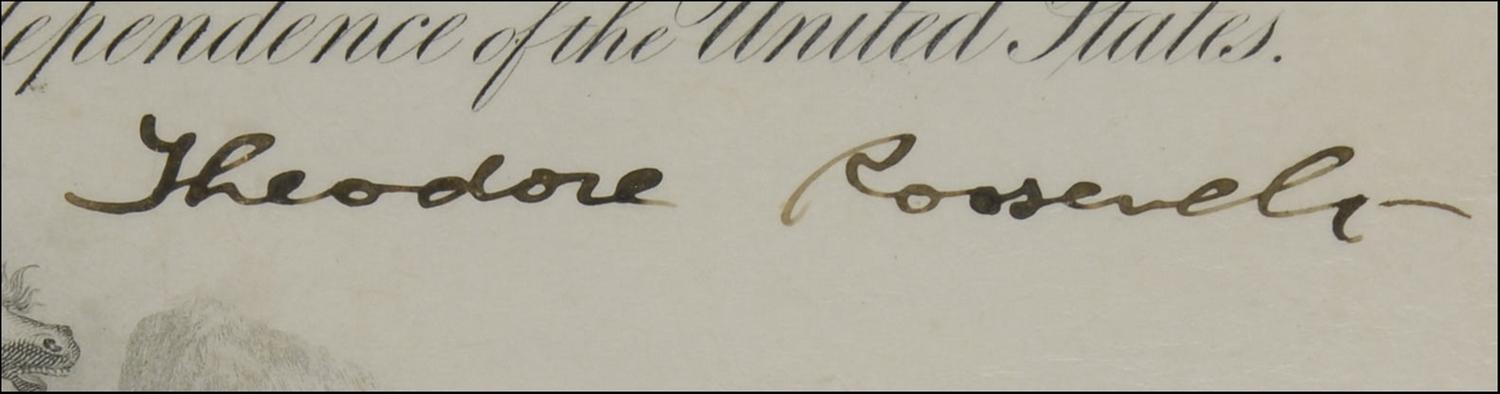 ependence of the United States.
Theodore Roosevelt